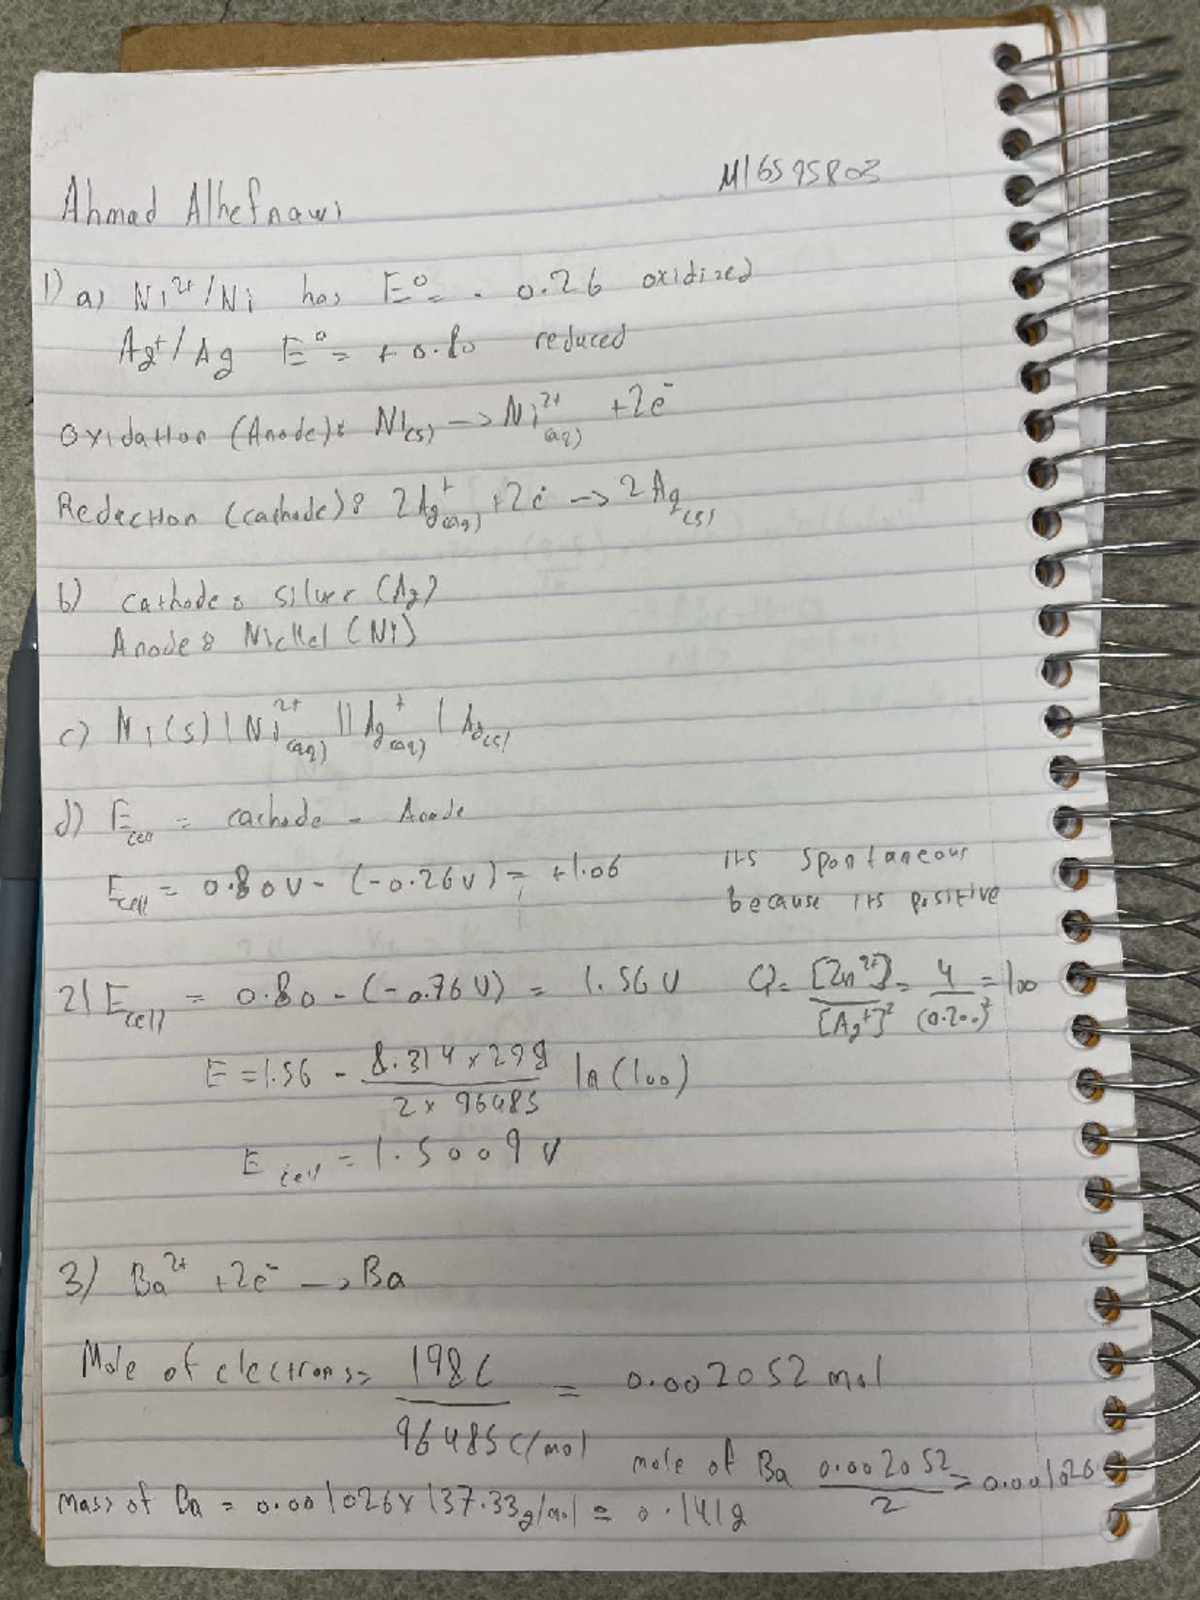 M16595803
Ahmad Alhefnawi
1) a) Ni²⁺/Ni has E°= - 0.26 oxidized
Ag⁺/Ag E°= +0.80 reduced
Oxidation (Anode): Ni(s) → Ni²⁺(aq) +2e⁻
Redection (cathode): 2Ag⁺(aq) +2e⁻ → 2Ag(s)
b) cathode: silver (Ag)
Anode: Nickel (Ni)
c) Ni(s) | Ni²⁺(aq) || Ag⁺(aq) | Ag(s)
d) Ecell = cathode - Anode
Ecell = 0.80V - (-0.26V) = +1.06 its spontaneous
because its positive
2) Ecell = 0.80 - (-0.76V) = 1.56V Q = [Zn²⁺]/[Ag⁺]² = 4/(0.200)² = 100
E = 1.56 - (8.314 x 298)/(2 x 96485) ln(100)
Ecell = 1.5009 V
3) Ba²⁺ +2e⁻ → Ba
Mole of electrons = 198C/96485C/mol = 0.002052 mol
mole of Ba 0.002052/2 = 0.001026
mass of Ba = 0.001026 x 137.33g/mol = 0.141g